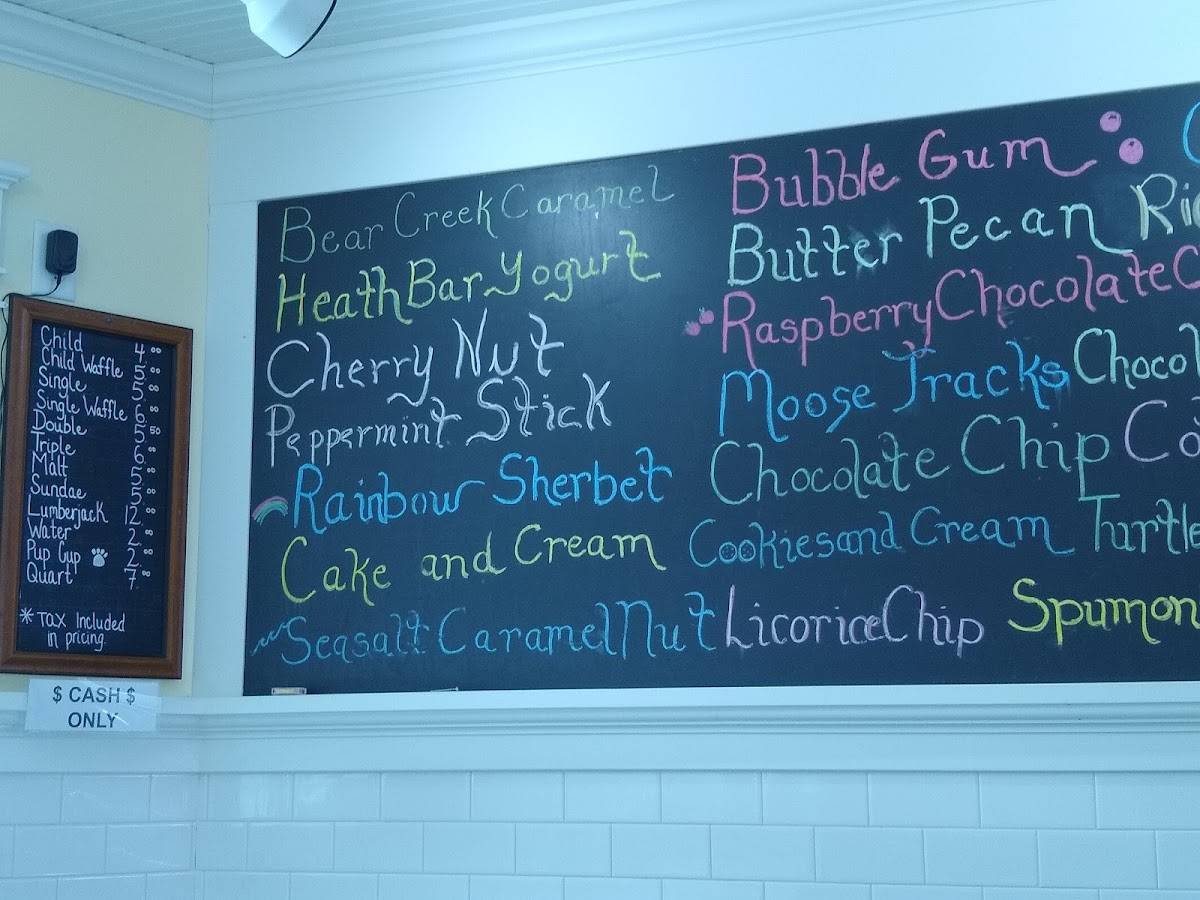 Child 4.00
Child Waffle 5.00
Single 5.00
Single Waffle 6.00
Double 5.50
Triple 6.00
Malt 5.00
Sundae 5.00
Lumberjack 12.00
Water 2.00
Pup Cup 2.00
Quart 7.00
* Tax Included
in pricing.
$ CASH $
ONLY
Bear Creek Caramel
Heath Bar Yogurt
Cherry Nut
Peppermint Stick
Rainbow Sherbet
Cake and Cream
Seasalt Caramel Nut
Bubble Gum
Butter Pecan
Raspberry Chocolate C
Moose Tracks
Chocolate Chip
Cookies and Cream
Licorice Chip
Chocol
Co
Turtle
Spumon